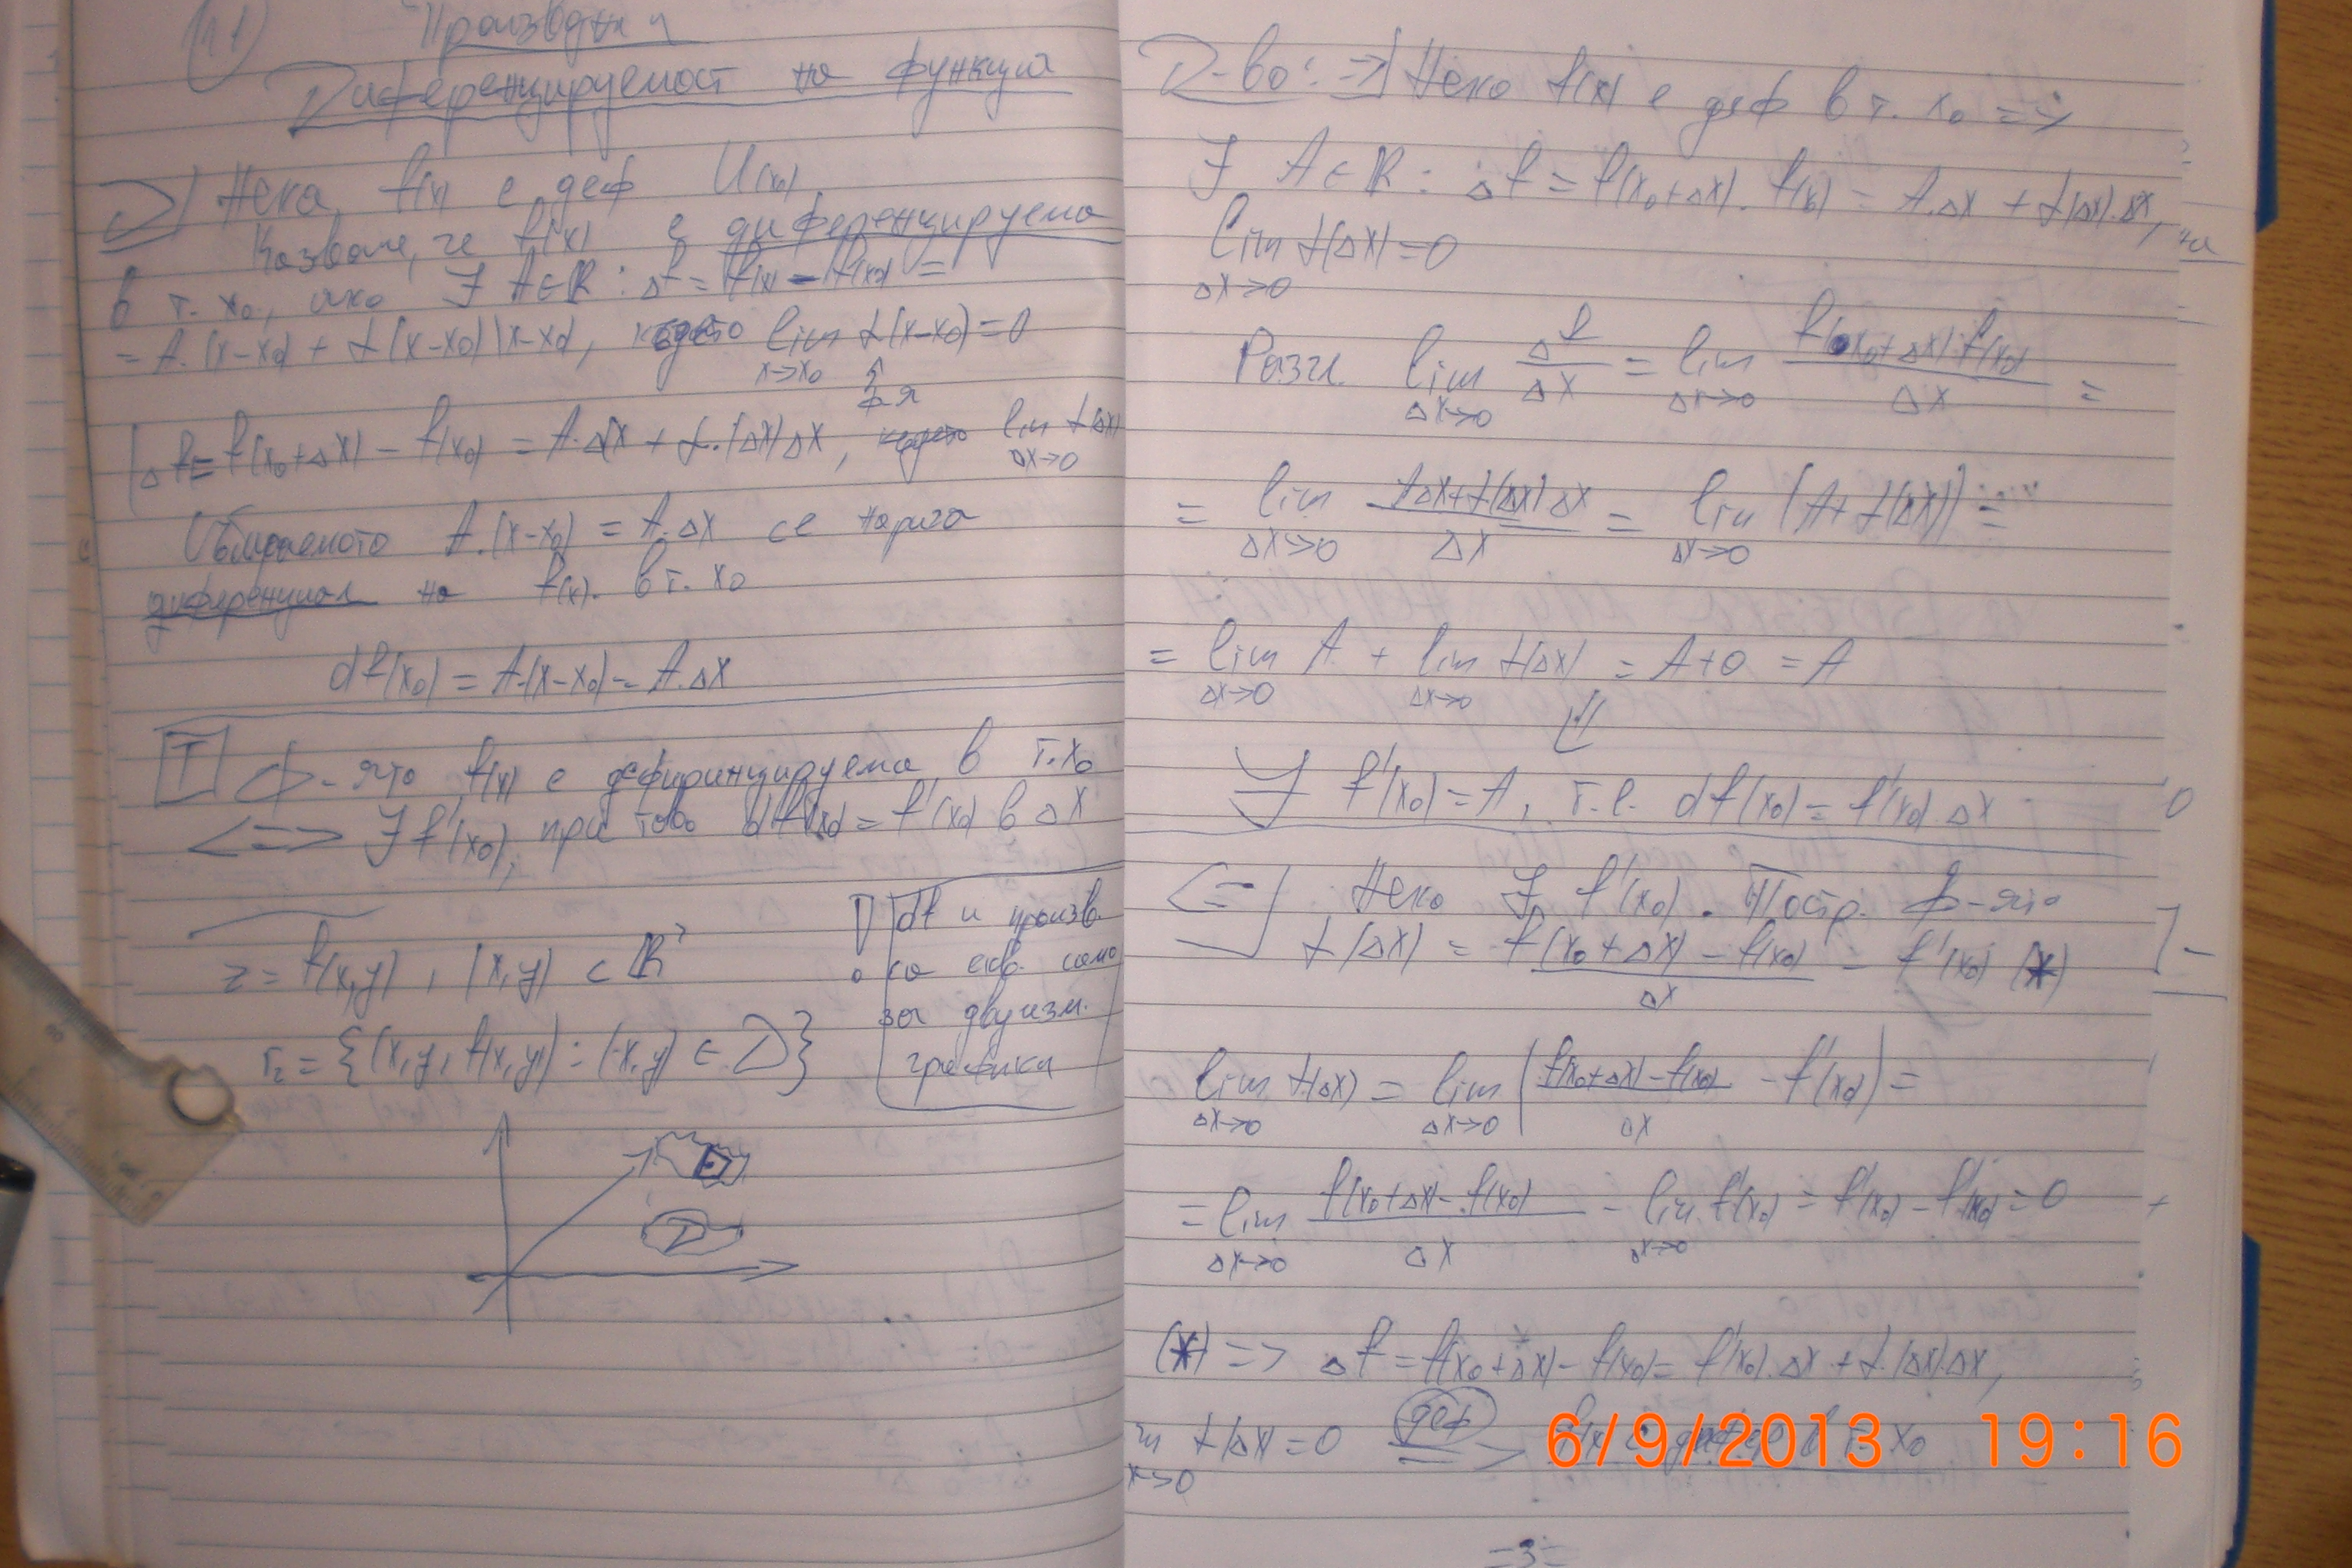 11)
Производни
Диференцируемост на функция
D) Нека f(x) е деф U(x₀)
Казваме, че f(x) е диференцируема
в т. x₀, ако ∃ A∈ℝ : Δf = f(x) - f(x₀) =
= A.(x-x₀) + α(x-x₀)(x-x₀), където lim α(x-x₀)=0
x→x₀
ф-я
Δf = f(x₀+Δx) - f(x₀) = A.Δx + α.(Δx)Δx, където lim α(Δx)
Δx→0
Събираемото A.(x-x₀) = A.Δx се нарича
диференциал на f(x). в т. x₀
df(x₀) = A.(x-x₀) = A.Δx
T ф-ята f(x) е дефиринцируема в т. x₀
<=> ∃ f'(x₀), при това df(x₀) = f'(x₀) в Δx
z = f(x,y), (x,y) ⊂ ℝ²
= {(x, y, f(x,y)) : (x,y) ∈ D}
! df и произв.
са екв. само
за двуизм.
графики
D
Д-во: =>] Нека f(x) е деф в т. x₀ =>
∃ A∈ℝ : Δf = f(x₀+Δx) - f(x₀) = A.Δx + α(Δx).Δx,
lim α(Δx)=0
Δx→0
Разгл. lim Δf/Δx = lim (f(x₀+Δx)-f(x₀))/Δx =
Δx→0 Δx→0
= lim (AΔx+α(Δx)Δx)/Δx = lim (A+α(Δx)) =
Δx→0 Δx→0
= lim A + lim α(Δx) = A+0 = A
Δx→0 Δx→0
⇓
∃ f'(x₀)=A, т.е. df(x₀) = f'(x₀).Δx
<=] Нека ∃ f'(x₀). Постр. ф-ята
α(Δx) = (f(x₀+Δx) - f(x₀))/Δx - f'(x₀) (*)
lim α(Δx) = lim ((f(x₀+Δx)-f(x₀))/Δx - f'(x₀)) =
Δx→0 Δx→0
= lim (f(x₀+Δx)-f(x₀))/Δx - lim f'(x₀) = f'(x₀) - f'(x₀) = 0
Δx→0 Δx→0
(*) => Δf = f(x₀+Δx) - f(x₀) = f'(x₀).Δx + α.(Δx)Δx,
α(Δx) = 0 деф => f(x) е дифер в т. x₀
x→0
6/9/2013 19:16
=3=